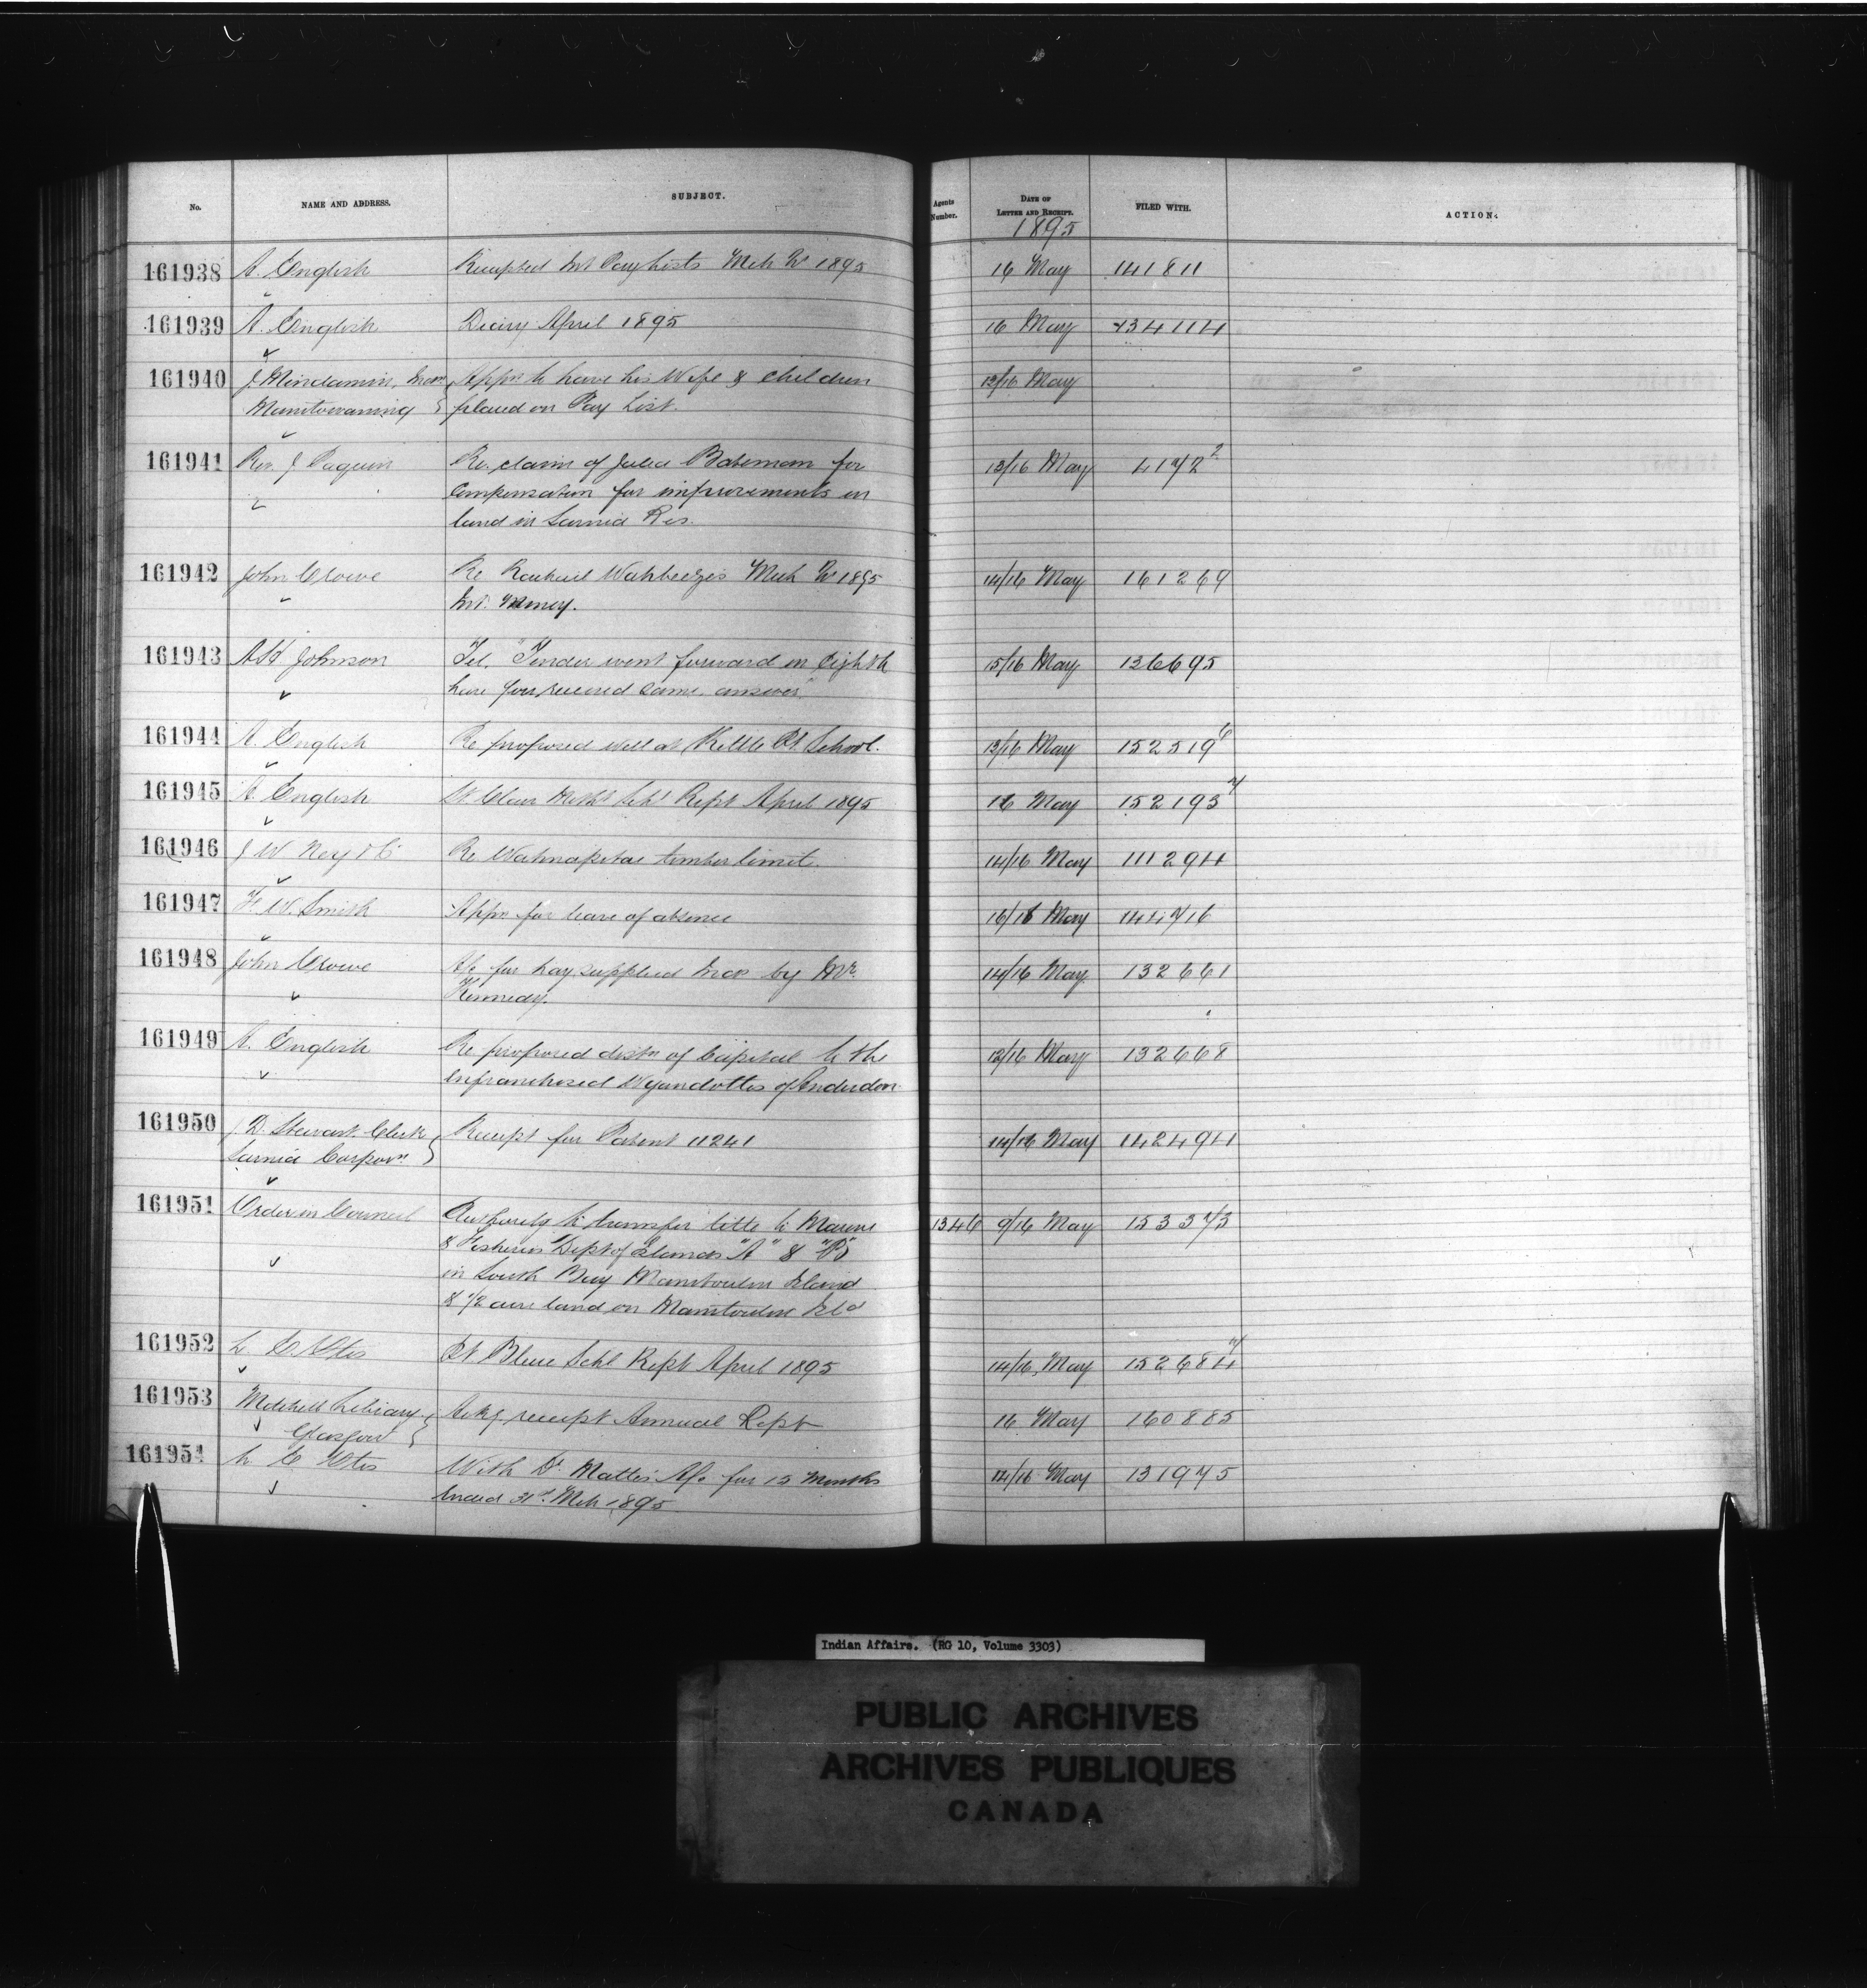 No. NAME AND ADDRESS. SUBJECT. Agents Number. DATE OF LETTER AND RECEIPT. FILED WITH. ACTION.
1895
161938 A. English Receipted Int Pay Lists Mch Qr 1895 16 May 141811
161939 A. English Diary April 1895 16 May 134114
161940 J Mindamin, Appn to have his Wife & children 13/16 May
Manitowaning placed on Pay List.
161941 Rev. J Paquin Re. claim of Julia Bateman for 13/16 May 4172 2
compensation for improvements on
land in Sarnia Res.
161942 John Crowe Re Wahbezee's Mch Qr 1895 14/16 May 161269
Int. Money.
161943 Johnson Tel. "Tender went forward on Eighth 15/16 May 136695
have you received same answer"
161944 A. English Re proposed well at Kettle Pt School. 13/16 May 152519 6
161945 A. English St Clair Meths Schl Rept April 1895 16 May 152193 7
161946 J W Ney & Co Re Wahnapitae timber limit. 14/16 May 111294
161947 F. W. Smith Appn for leave of absence 16/16 May 144716
161948 John Crowe A/c for hay supplied Inds by Mr. 14/16 May 132661
Kennedy.
161949 A. English Re proposed distn of Capital to the 12/16 May 132668
enfranchised Wyandottes of Anderdon
161950 J. D. Stewart, Clerk Receipt for Patent 11241 14/16 May 142494
Sarnia Corporn.
161951 Order in Council Authority to transfer title to Marine 1346 9/16 May 153373
& Fisheries Dept of Islands "A" & "B"
in South Bay Manitoulin Island
& 1/2 acre land on Manitoulin Isld
161952 Pt Bleue Schl Rept April 1895 14/16 May 152684 7
161953 Mitchell Library Ackg receipt Annual Rept 16 May 160885
Glasgow
161954 With Dr Matte's A/c for 12 Months 14/16 May 131975
ended 31st. Mch 1895
Indian Affairs. (RG 10, Volume 3303)
PUBLIC ARCHIVES
ARCHIVES PUBLIQUES
CANADA